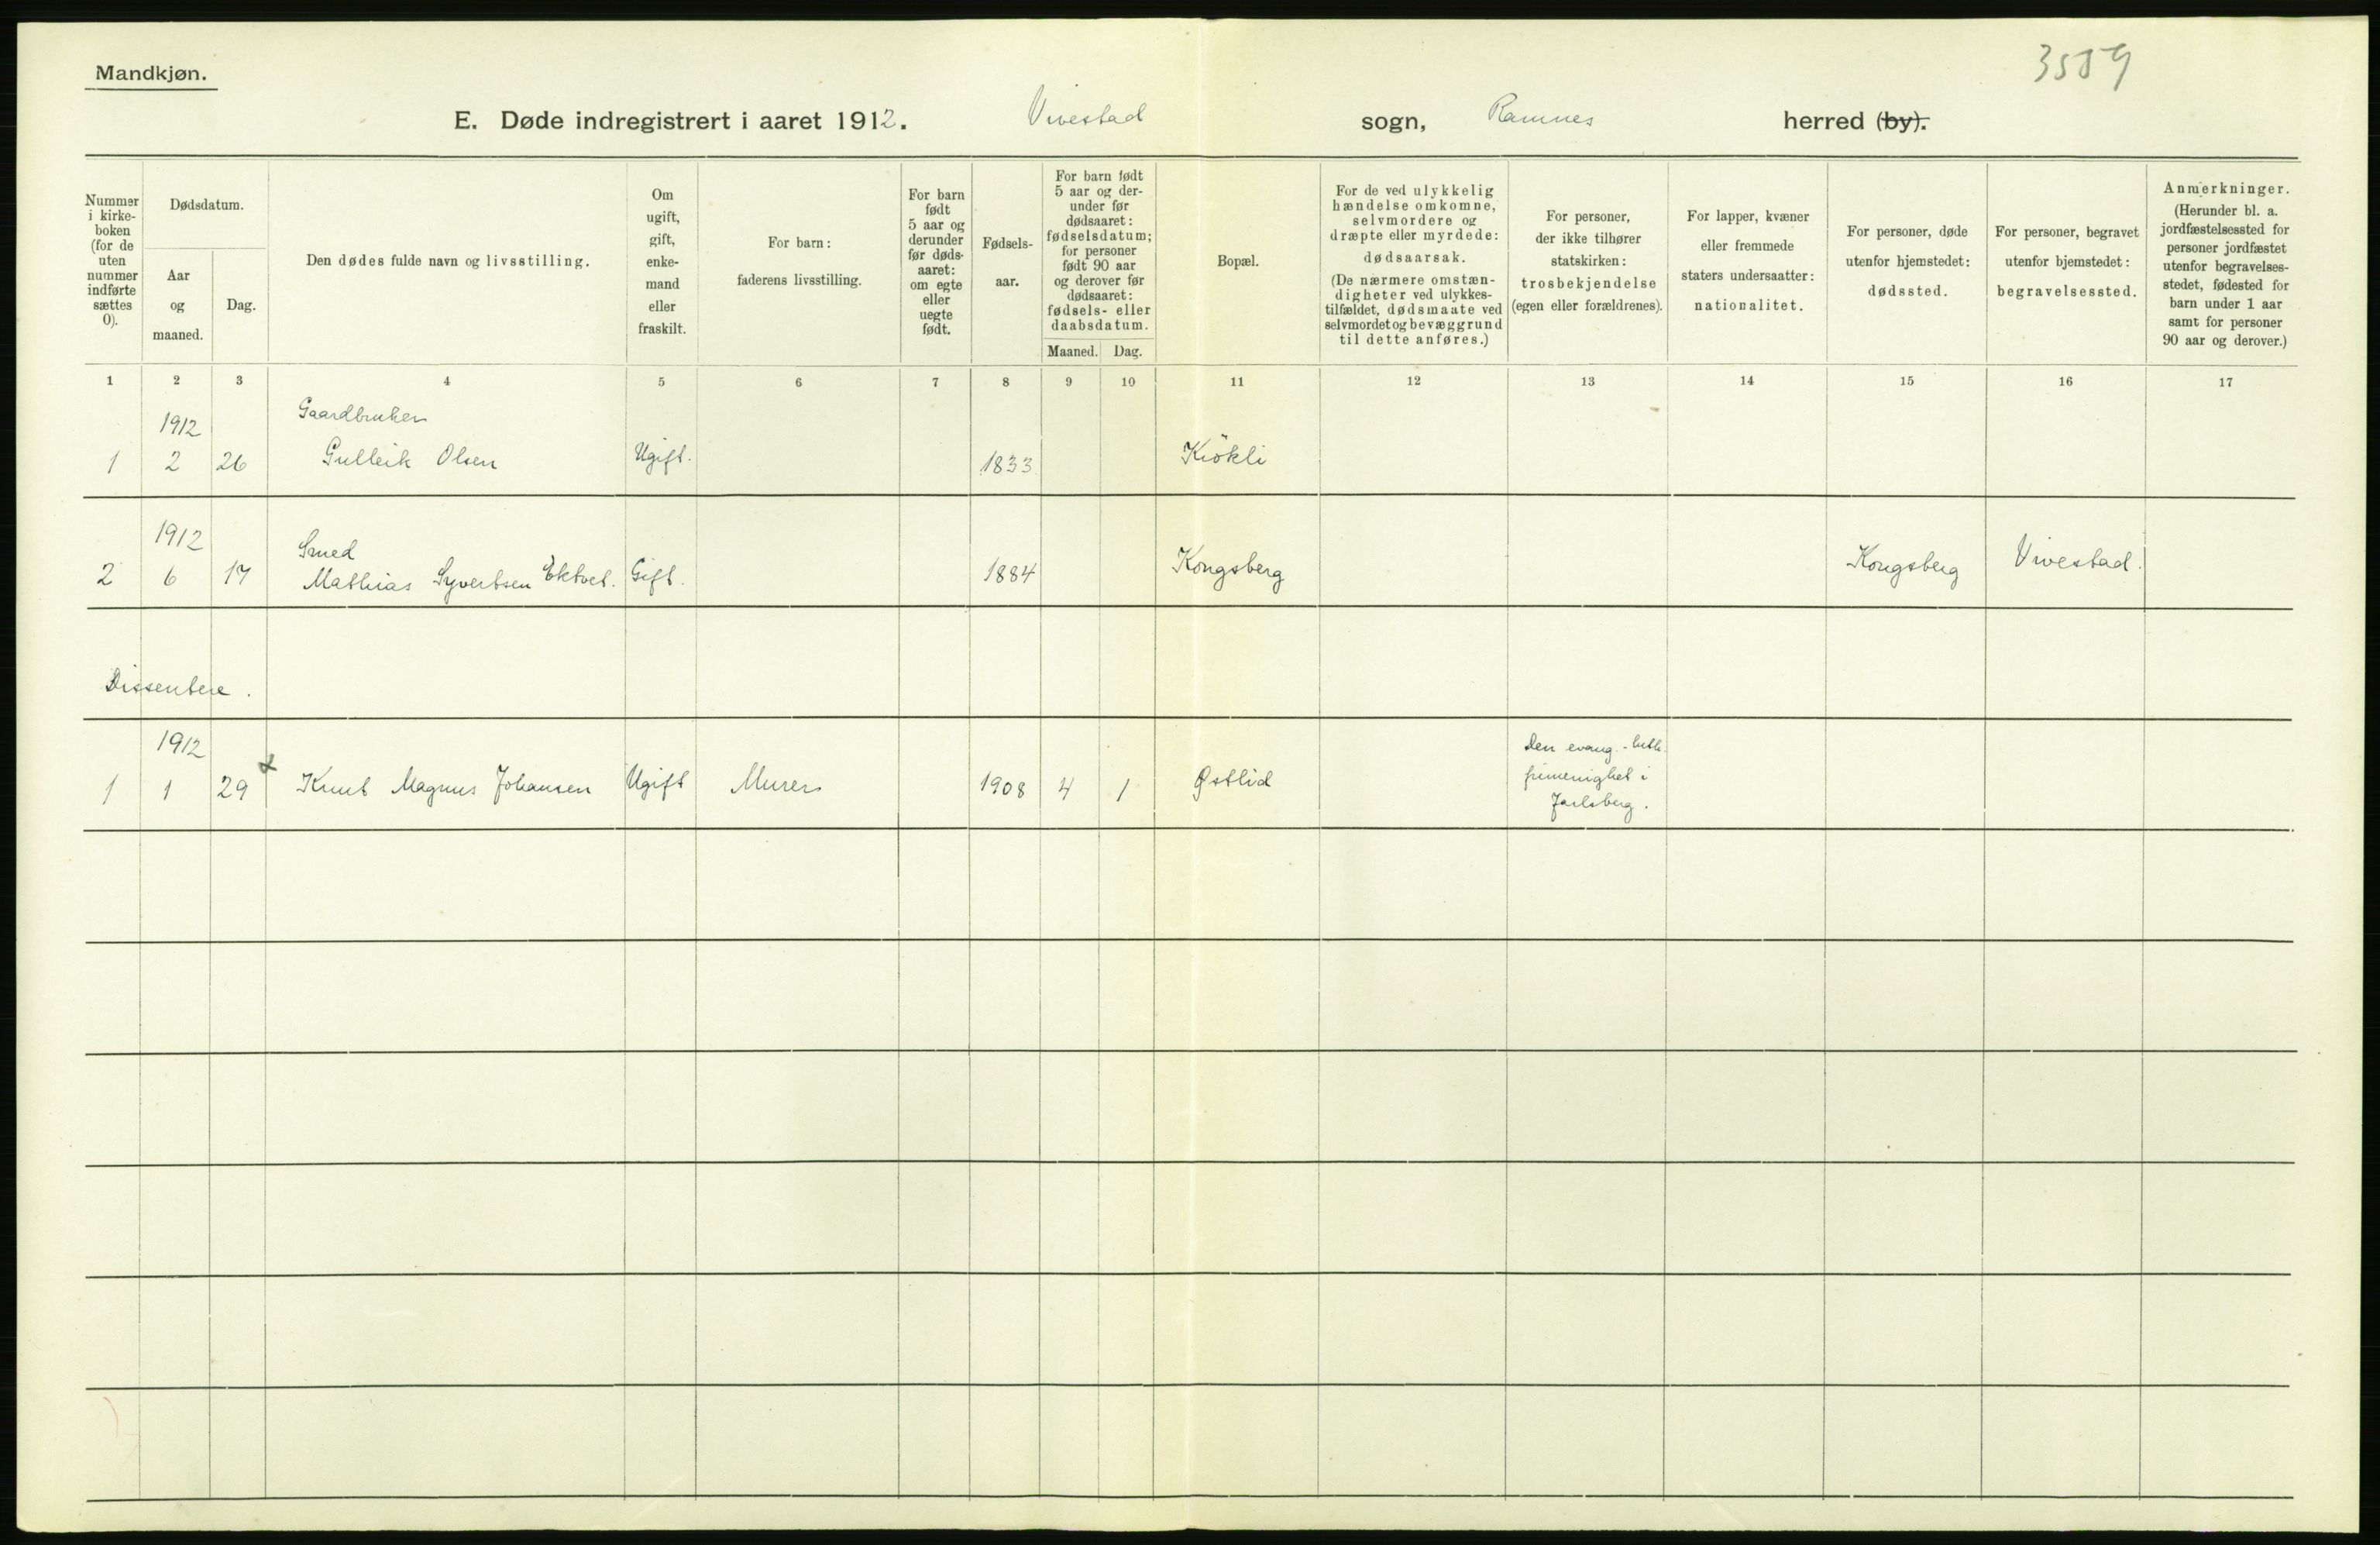 Mandkjøn.
E. Døde indregistrert i aaret 1912. Vivestad sogn, Ramnes herred (by).
Nummer i kirke-boken (for de uten nummer indførte sættes 0).
Dødsdatum.
Aar og maaned.
Dag.
Den dødes fulde navn og livsstilling.
Om ugift, gift, enke-mand eller fraskilt.
For barn: faderens livsstilling.
For barn født 5 aar og derunder før døds-aaret: om egte eller uegte født.
Fødsels-aar.
For barn født 5 aar og der-under før dødsaaret: fødselsdatum; for personer født 90 aar og derover før dødsaaret: fødsels- eller daabsdatum.
Maaned. Dag.
Bopæl.
For de ved ulykkelig hændelse omkomne, selvmordere og dræpte eller myrdede: dødsaarsak.
(De nærmere omstæn-digheter ved ulykkes-tilfældet, dødsmaate ved selvmordet og bevæggrund til dette anføres.)
For personer, der ikke tilhører statskirken: trosbekjendelse (egen eller forældrenes).
For lapper, kvæner eller fremmede staters undersaatter: nationalitet.
For personer, døde utenfor hjemstedet: dødssted.
For personer, begravet utenfor bjemstedet: begravelsessted.
Anmerkninger.
(Herunder bl. a. jordfæstelsessted for personer jordfæstet utenfor begravelses-stedet, fødested for barn under 1 aar samt for personer 90 aar og derover.)
1 2 3 4 5 6 7 8 9 10 11 12 13 14 15 16 17
1912 Gaardbruker
1 2 26 Gulleik Olsen Ugift. 1833 Kiökli
1912 Smed
2 6 17 Mathias Syvertsen Ektvet. Gift. 1884 Kongsberg Kongsberg Vivestad.
Dissentere.
1912 Den evang.-luth.
1 1 29 Knut Magnus Johansen Ugift Murer 1908 4 1 Østlid frimenighet i
Jarlsberg.